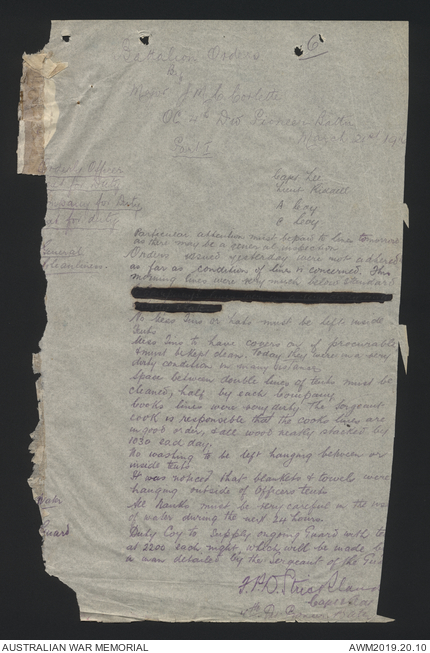 6
Battalion Orders
By
Major J.M.C. Corlette
OC 4th Div Pioneer Battn
March 21st 191
Part I
Orderly Officer
Capt Lee
Lieut Riddell
Company for Duty
A Coy
C Coy
General
Cleanliness.
Particular attention must be paid to lines tomorrow
as there may be a general inspection.
Orders issued yesterday were not adhered
as far as condition of lines is concerned. This
morning lines were very much below standard
No Mess Tins or hats must be left inside
tents
Mess Tins to have covers on if procurable
& must be kept clean. Today they were in a very
dirty condition in many instances.
Space between double lines of tents must be
cleaned, half by each Company.
Cooks lines were very dirty the Sergeant
cook is responsible that the cooks lines are
in good order, & all wood neatly stacked by
1030 each day.
No washing to be left hanging between or
inside tents
It was noticed that blankets & towels were
hanging outside of Officers tents
Water
All Ranks must be very careful in the use
of water during the next 24 hours.
Guard
Duty Coy to supply ongoing Guard with
at 2200 each night which will be made
a man detailed by the Sergeant of the
Capt
AUSTRALIAN WAR MEMORIAL
AWM2019.20.10